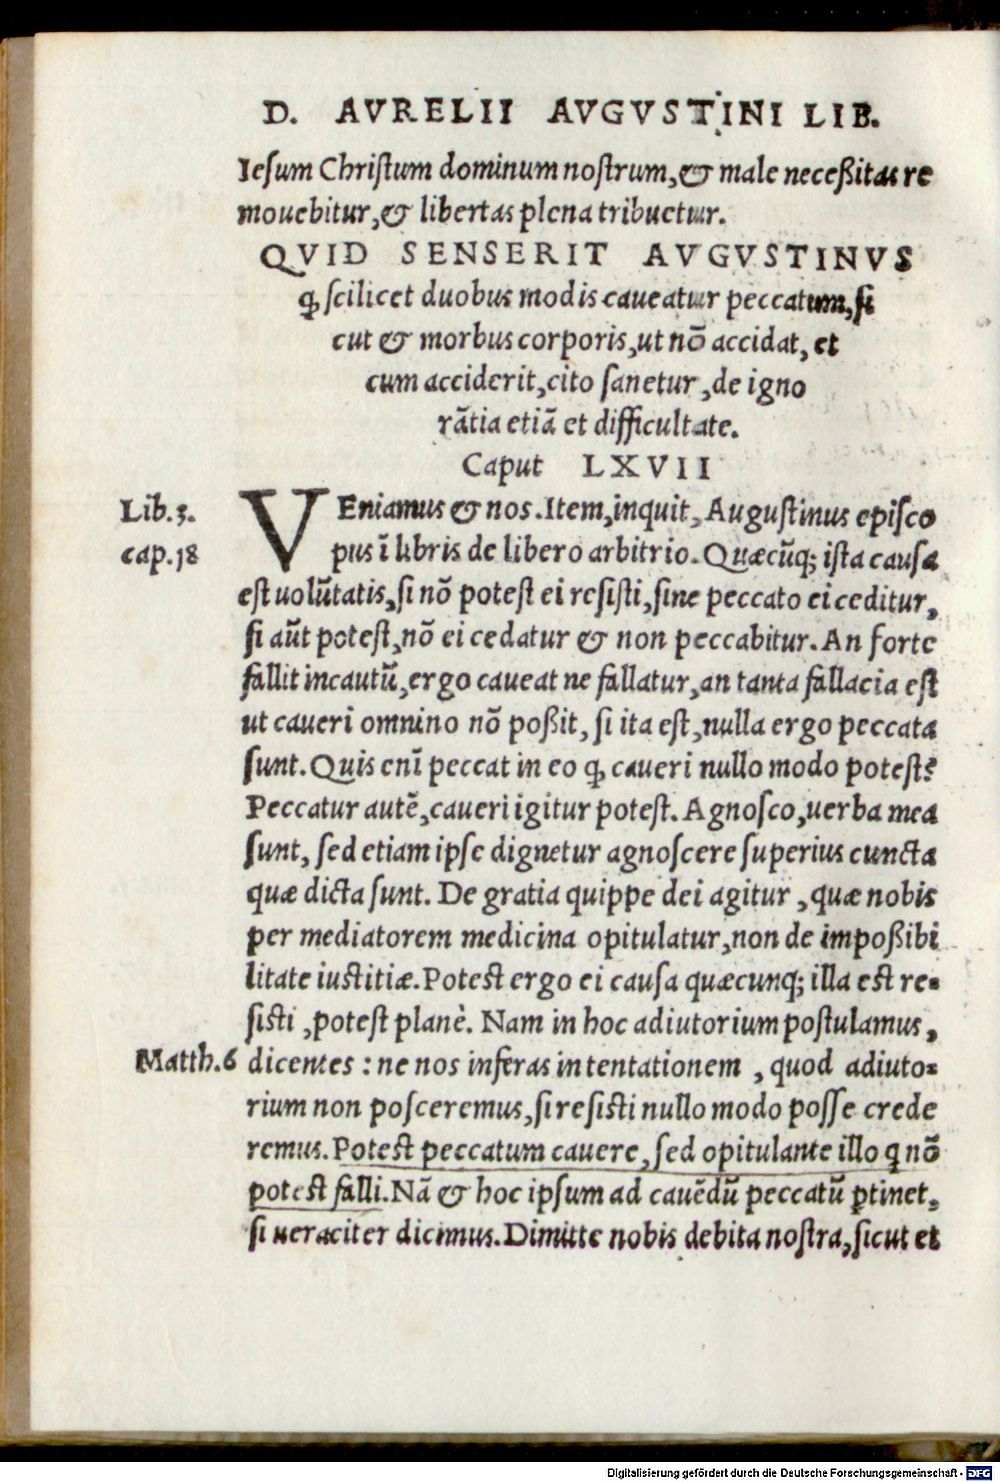 D. AVRELII AVGVSTINI LIB.
Iesum Christum dominum nostrum, & male neceßitas re
mouebitur, & libertas plena tribuetur.
QVID SENSERIT AVGVSTINVS
ꝙ scilicet duobus modis caueatur peccatum, si
cut & morbus corporis, ut nō accidat, et
cum acciderit, cito sanetur, de igno
rātia etiā et difficultate.
Caput LXVII
Lib. 3.
cap. 18
VEniamus & nos. Item, inquit, Augustinus episco
pus ī libris de libero arbitrio. Quæcūq; ista causa
est uolūtatis, si nō potest ei resisti, sine peccato ei ceditur,
si aūt potest, nō ei cedatur & non peccabitur. An forte
fallit incautū, ergo caueat ne fallatur, an tanta fallacia est
ut caueri omnino nō poßit, si ita est, nulla ergo peccata
sunt. Quis enī peccat in eo ꝙ caueri nullo modo potest?
Peccatur autē, caueri igitur potest. Agnosco, uerba mea
sunt, sed etiam ipse dignetur agnoscere superius cuncta
quæ dicta sunt. De gratia quippe dei agitur, quæ nobis
per mediatorem medicina opitulatur, non de impoßibi
litate iustitiæ. Potest ergo ei causa quæcunq; illa est re-
sisti, potest planè. Nam in hoc adiutorium postulamus,
Matth. 6
dicentes: ne nos inferas in tentationem, quod adiuto-
rium non posceremus, si resisti nullo modo posse crede
remus. Potest peccatum cauere, sed opitulante illo q nō
potest falli. Nā & hoc ipsum ad cauēdū peccatū ꝑtinet,
si ueraciter dicimus. Dimitte nobis debita nostra, sicut et
Digitalisierung gefördert durch die Deutsche Forschungsgemeinschaft - DFG